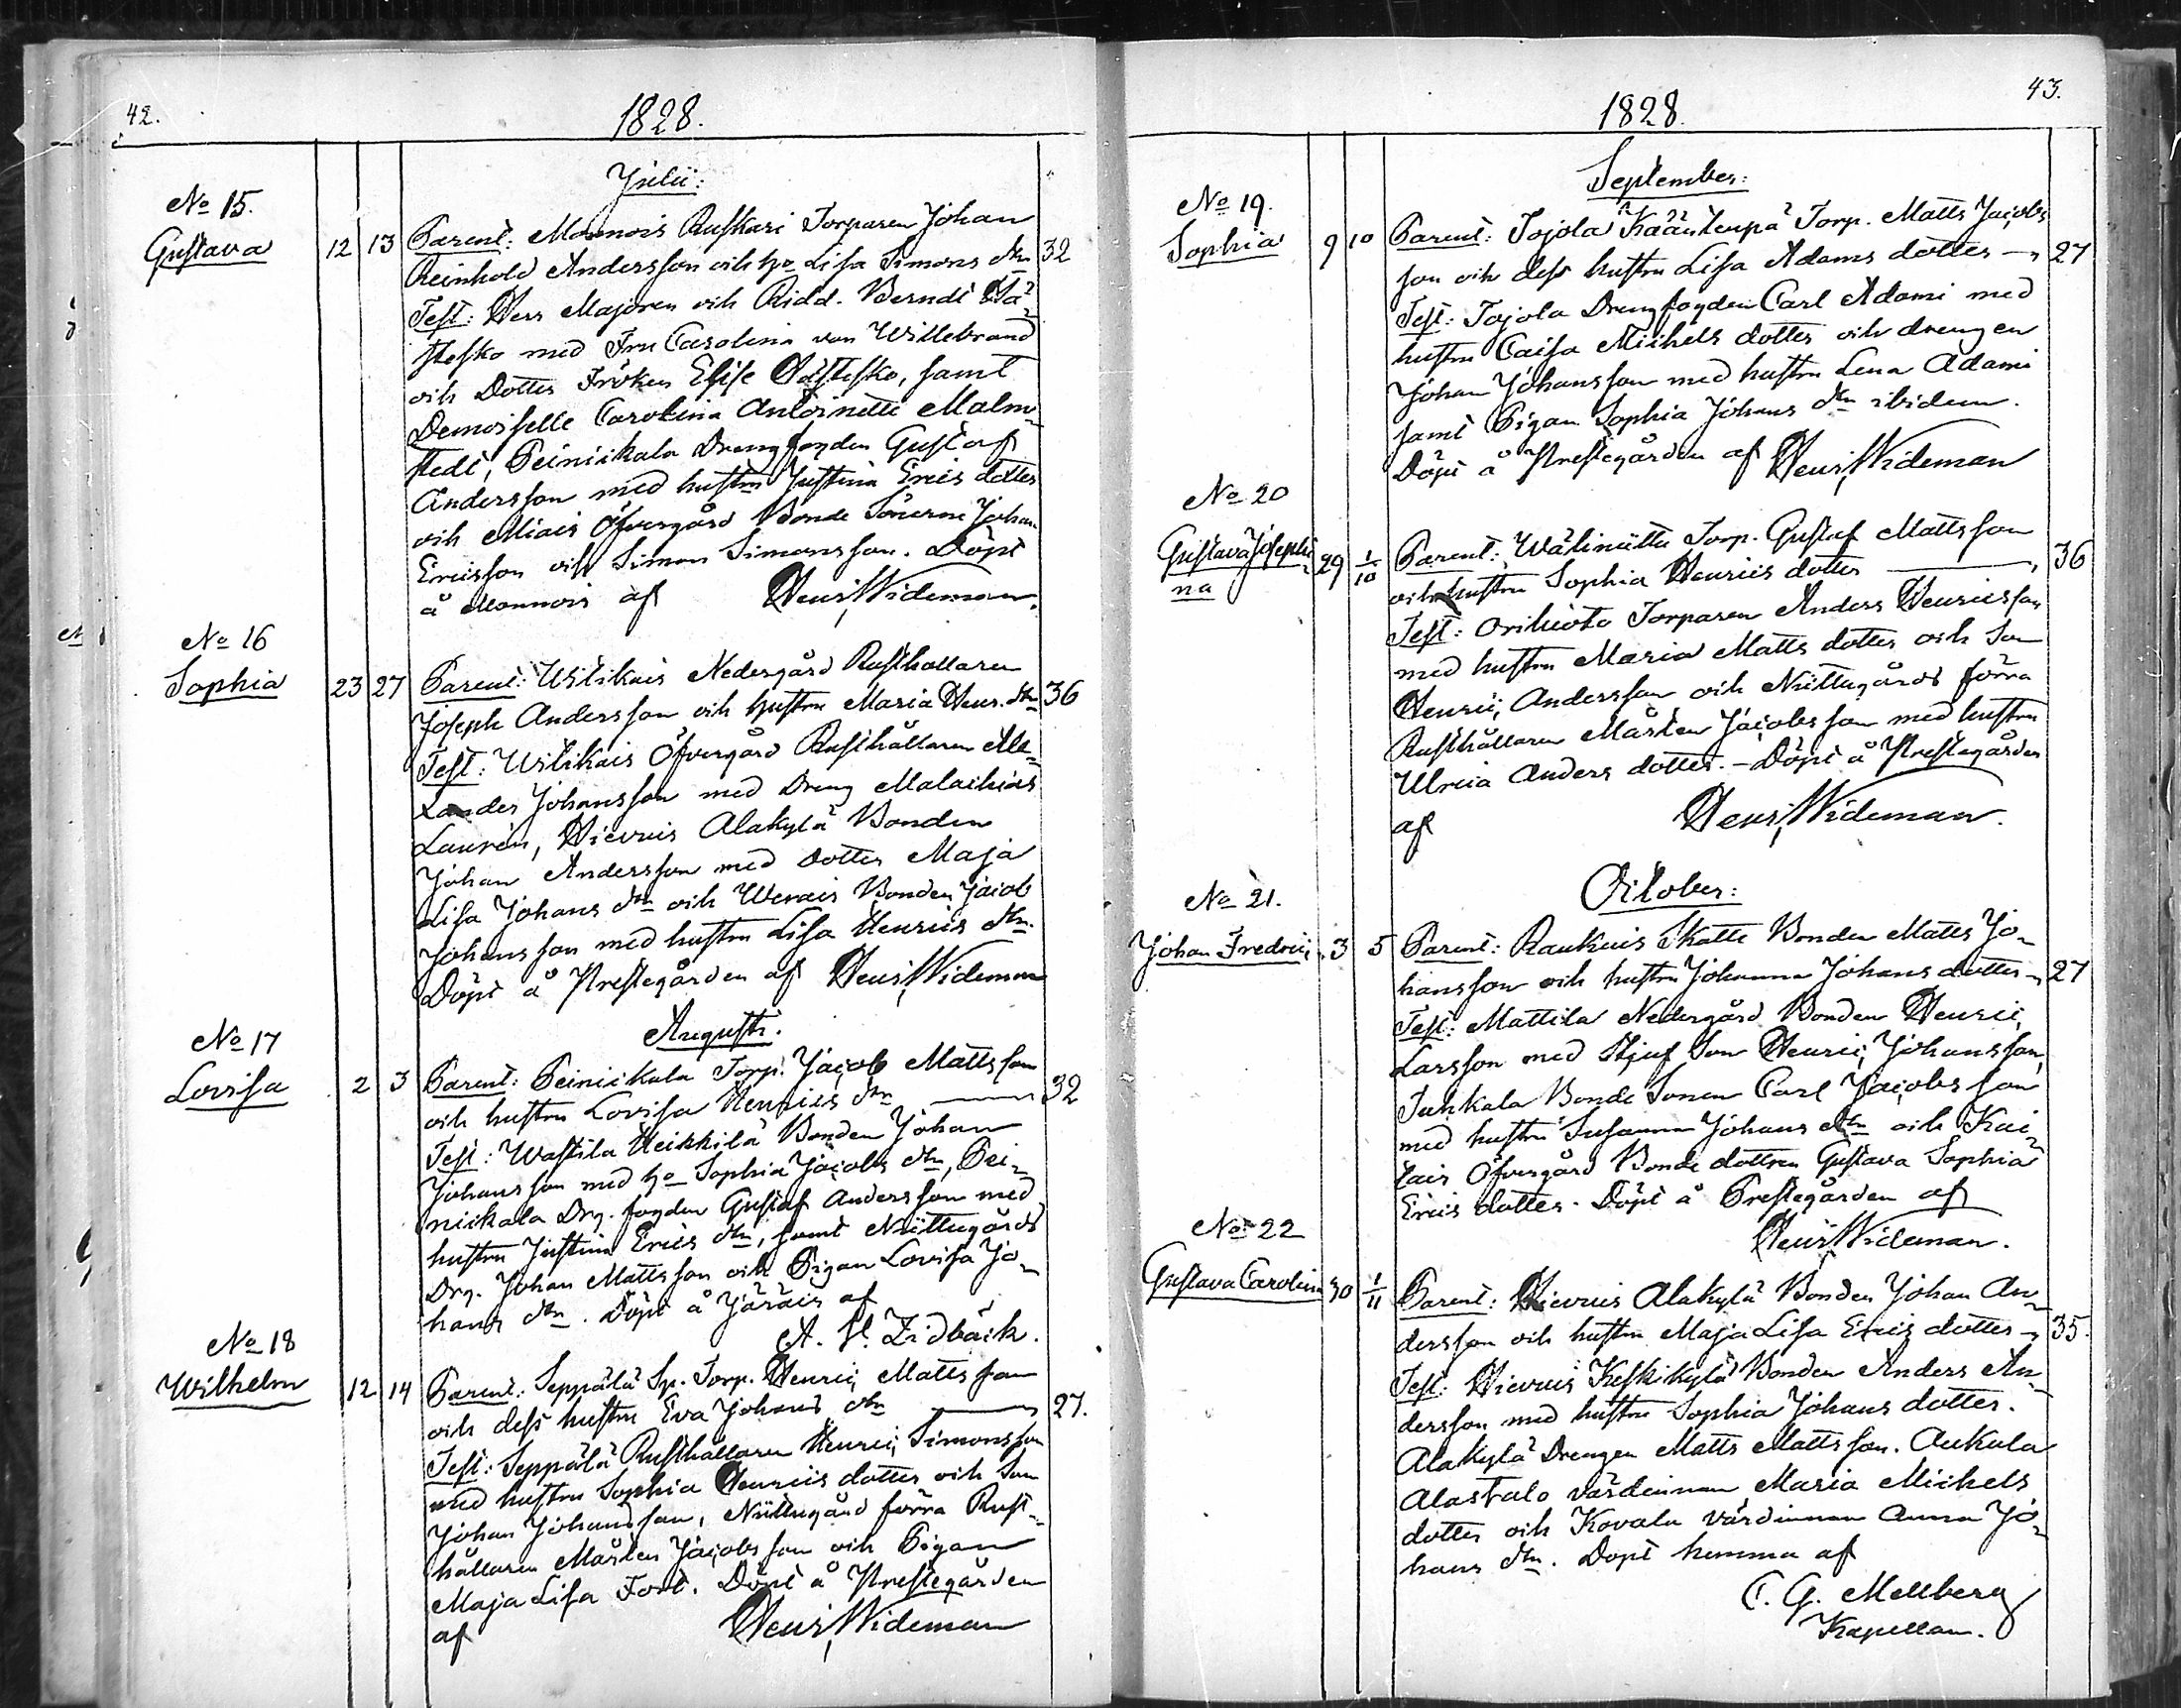 42.
1828.
Julii:
No 15.
Gustava
12 13
Parent: Monnois Ruskari Torparen Johan
Reinhold Andersson och ho Lisa Simons dtr 32
Test: Herr Majoren och Ridd. Berndt Stå=
lesko med Fru Carolina von Willebrand
och Dotter Fröken Elise, samt
Demoiselle Carolina Antoinette Malm=
stedt, Peinikkala Drengfogden Gustaf
Andersson med hustru Justina Erics dotter
och Miais Öfvergård Bonde Sönerne Johan
Ericsson och Simon Simonsson. Döpt
å Monnois af Henr. Wideman.
No 16
Sophia
23 27
Parent: Uitikais Nedergård Rusthollaren
Joseph Andersson och hustru Maria Henr. dtr 36
Test: Uitikais Öfvergård Rusthållaren Ale=
xander Johansson med Dreng Malachias
Laurén, Hievuis Alakylä Bonden
Johan Andersson med dotter Maja
Lisa Johans dtr och Uerais Bonden Jacob
Johansson med hustru Lisa Henrics dtr.
Döpt å Prestegården af Henr. Wideman
Augusti.
No 17
Lovisa
2 3
Parent: Peinickala Torp. Jacob Mattsson
och hustru Lovisa Henrics dtr 32
Test: Wastila Heikkilä Bonden Johan
Johansson med ho Sophia Jacobs dtr, Pei=
nickala Drg. fogden Gustaf Andersson med
hustru Justina Erics dtr, samt Niittugårds
Drg. Johan Mattsson och Pigan Lovisa Jo=
hans dtr. Döpt å Järäis af
A. H. Zidbäck.
No 18
Wilhelm
12 14
Parent: Seppälä Sp. Torp. Henric Mattsson
och dess hustru Eva Johans dtr 27.
Test: Seppälä Rusthållaren Henric Simonsson
med hustru Sophia Henrics dotter och Son
Johan Johansson, Niittugård förra Rust-
hållaren Mårten Jacobsson och Pigan
Maja Lisa Fort. Döpt å Prestegården
af Henr. Wideman
43.
1828.
September:
No 19.
Sophia
9 10
Parent: Tojola Käänteenpä Torp. Matts Jacobs
son och dess hustru Lisa Adams dotter 27
Test: Tojola Drengfogden Carl Adami med
hustru Caisa Michels dotter och drengen
Johan Johansson med hustru Lena Adami
samt Pigan Sophia Johans dtr ibidem.
Döpt å Prestegården af Henr. Wideman
No 20
Gustava Josephi=
na
29 1/10
Parent: Wäliniittu Torp. Gustaf Mattsson
och hustru Sophia Henrics dotter 36
Test: Orihieto Torparen Anders Henricsson
med hustru Maria Matts dotter och Son
Henric Andersson och Niittugårds förra
Rusthållaren Mårten Jacobsson med hustru
Ulrica Anders dotter. - Döpt å Prestegården
af Henr. Wideman.
October:
No 21.
Johan Fredric
3 5
Parent: Raukuis Skatte Bonden Matts Jo=
hansson och hustru Johanna Johans dotter 27
Test: Mattila Nedergård Bonden Henric
Larsson med Stjuf Son Henric Johansson,
Jukkala Bonde Sonen Carl Jacobsson
med hustru Susanna Johans dtr och Kai=
tais Öfvergård Bonde dottren Gustava Sophia
Erics dotter. Döpt å Prestegården af
Henr. Wideman.
No 22
Gustava Carolina
30 1/11
Parent: Hievuis Alakylä Bonden Johan An=
dersson och hustru Maja Lisa Erics dotter 35.
Test: Hievuis Keskikylä Bonden Anders An=
dersson med hustru Sophia Johans dotter.
Alakylä Drengen Matts Mattsson. Aukula
Alastalo värdinnan Maria Michels
dotter och Kovala värdinnan Anna Jo=
hans dtr. Döpt hemma af
C. G. Mellberg
Kapellan.